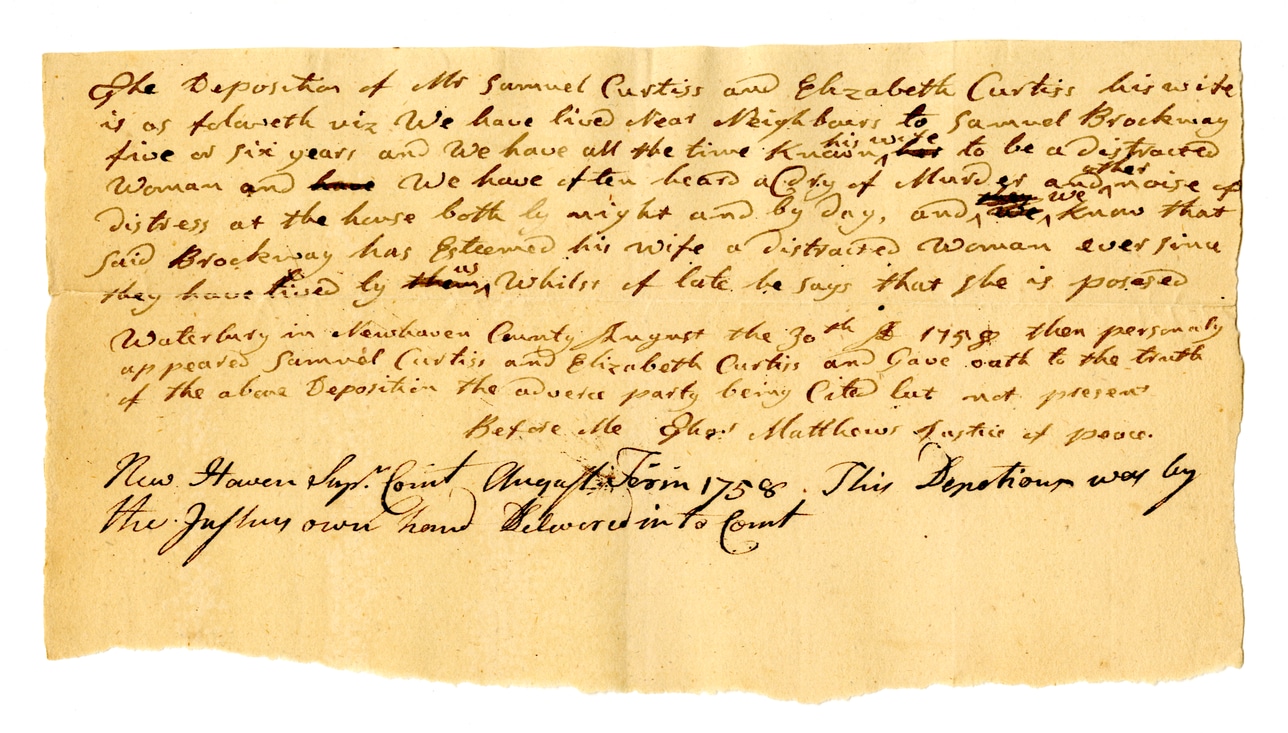 The Deposition of Mr Samuel Curtiss and Elizabeth Curtiss his wife
is as folaweth viz We have lived Near Neighbours to Samuel Brockway
five or six years and We have all the time Known his wife her to be a distracted
Woman and have We have often heard a Cdry of Murder and other noise of
distress at the house both by night and by day, and they we we know that
said Brockway has Esteemed his Wife a distracted Woman ever since
they have lived by them us Whilss of late he says that she is posesed
Waterbury in Newhaven County August the 30th 1758 then personaly
appeared Samuel Curtiss and Elizabeth Curtiss and Gave oath to the truth
of the above Deposition the adverce party being Cited but not present
Before Me Thos Matthews Justice of peace.
New Haven Supr. Court August Term 1758. This Depotions was by
the Justices own hand Delivered in to Court